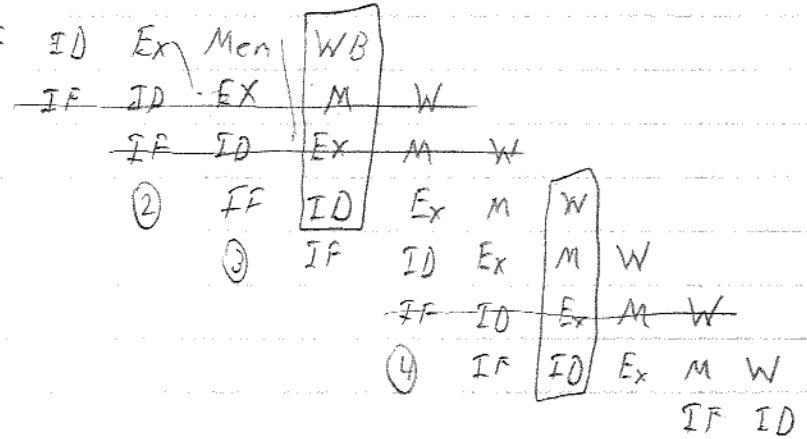 ID Ex Mem WB
IF ID EX M W
IF ID Ex M W
② IF ID Ex M W
③ IF ID Ex M W
IF ID Ex M W
④ IF ID Ex M W
IF ID